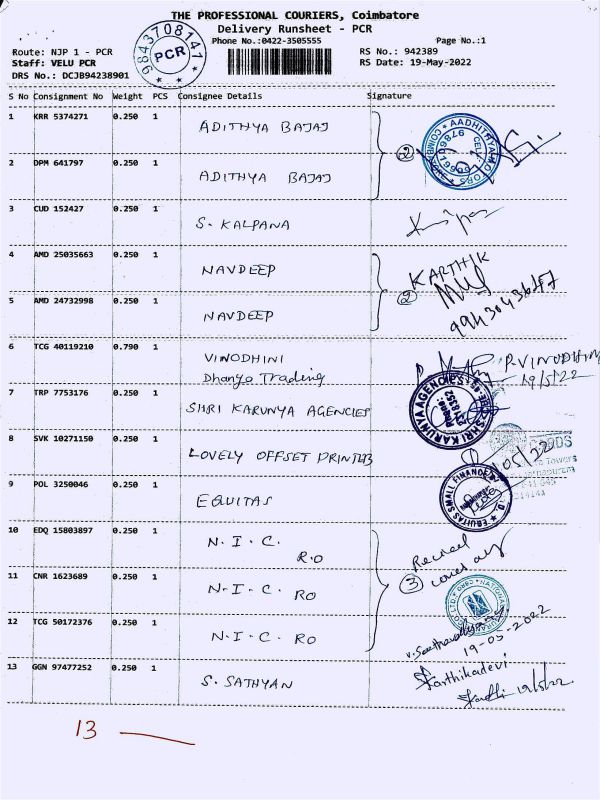 THE PROFESSIONAL COURIERS, Coimbatore
Delivery Runsheet - PCR
Phone No.:0422-3505555 Page No.:1
Route: NJP 1 - PCR RS No.: 942389
Staff: VELU PCR RS Date: 19-May-2022
DRS No.: DCJB94238901
9843708141
PCR
S No Consignment No Weight PCS Consignee Details Signature
1 KRR 5374271 0.250 1 ADITHYA BAJAJ
2 DPM 641797 0.250 1 ADITHYA BAJAJ
2
3 CUD 152427 0.250 1 S. KALPANA
4 AMD 25035663 0.250 1 NAVDEEP
KARTHIK
5 AMD 24732998 0.250 1 NAVDEEP
2
6 TCG 40119210 0.790 1 VINODHINI
Dhanya Trading
P.VINODHINI
19/5/22
7 TRP 7753176 0.250 1 SHRI KARUNYA AGENCIES
SHRI KARUNYA AGENCIES
8 SVK 10271150 0.250 1 LOVELY OFFSET PRINTERS
9 POL 3250046 0.250 1 EQUITAS
EQUITAS SMALL FINANCE
10 EDQ 15803897 0.250 1 N.I.C. R.O
11 CNR 1623689 0.250 1 N.I.C. RO
3
12 TCG 50172376 0.250 1 N.I.C. RO
19-05-2022
13 GGN 97477252 0.250 1 S. SATHYAN
Karthikadevi
19/5/22
13